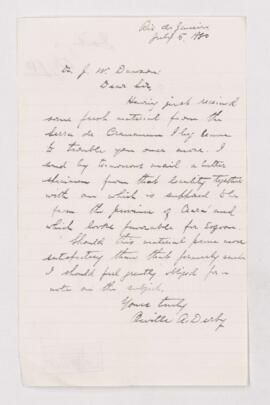 Rio de Janeiro
July 5, 1880
Dr. J. W. Dawson
Dear Sir,
Having just received
some fresh material from the
Serra de I beg leave
to trouble you once more. I
send by tomorrows mail a better
specimen from that locality together
with one which is supposed to be
from the province of Ceará and
which looks favorable for Eozoon.
Should this material prove more
satisfactory than that formerly sent
I should feel greatly obliged for a
note on the subject.
Yours truly
Orville A. Derby